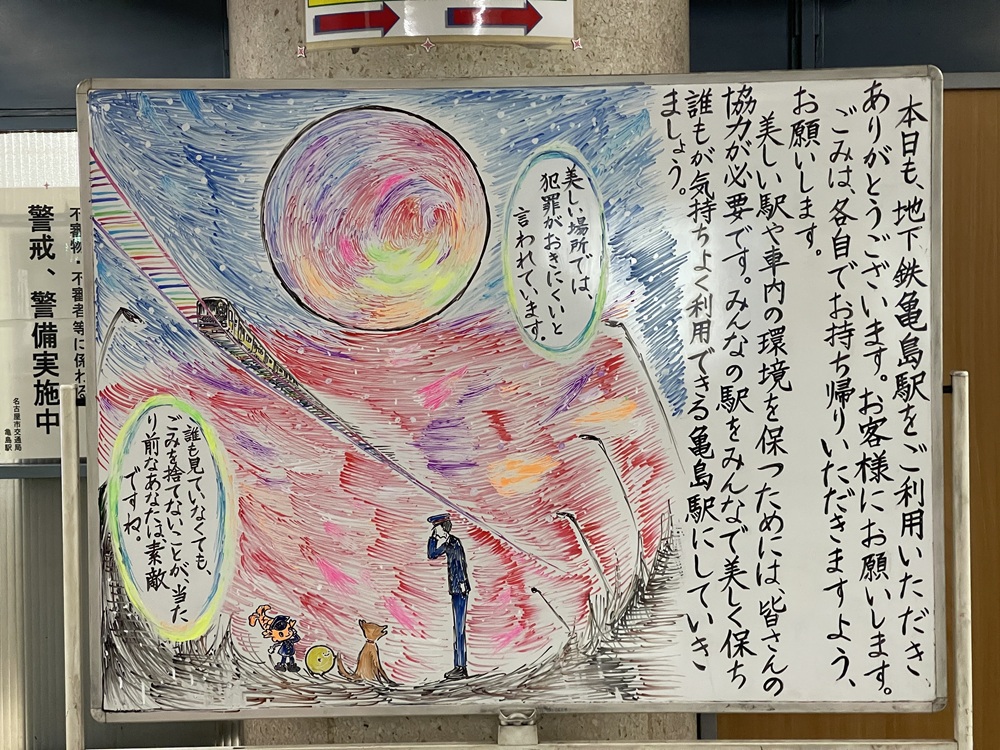 本日も、地下鉄亀島駅をご利用いただき
ありがとうございます。お客様にお願いします。
ごみは、各自でお持ち帰りいただきますよう、
お願いします。
美しい駅や車内の環境を保つためには、皆さんの
協力が必要です。みんなの駅をみんなで美しく保ち
誰もが気持ちよく利用できる亀島駅にしていき
ましょう。
美しい場所では、
犯罪がおきにくいと
言われています。
誰も見ていなくても、
ごみを捨てないことが、当た
り前なあなたは素敵
ですね。
不審物・不審者等に係わる
警戒、警備実施中
名古屋市交通局
亀島駅